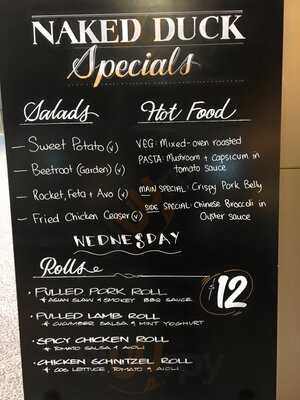 NAKED DUCK
Specials
Salads
— Sweet Potato (v)
— Beetroot (Garden) (v)
— Rocket, Feta + Avo (v)
— Fried Chicken Ceaser (v)
Hot Food
VEG: Mixed-oven roasted
PASTA: Mushroom + capsicum in
tomato sauce
MAIN SPECIAL: Crispy Pork Belly
SIDE SPECIAL: Chinese Broccoli in
Oyster sauce
WEDNESDAY
Rolls
$12
• PULLED PORK ROLL
+ ASIAN SLAW & SMOKEY BBQ SAUCE
• PULLED LAMB ROLL
+ CUCUMBER SALSA & MINT YOGHURT
• SPICY CHICKEN ROLL
+ TOMATO SALSA & AIOLI
• CHICKEN SCHNITZEL ROLL
+ COS LETTUCE, TOMATO & AIOLI